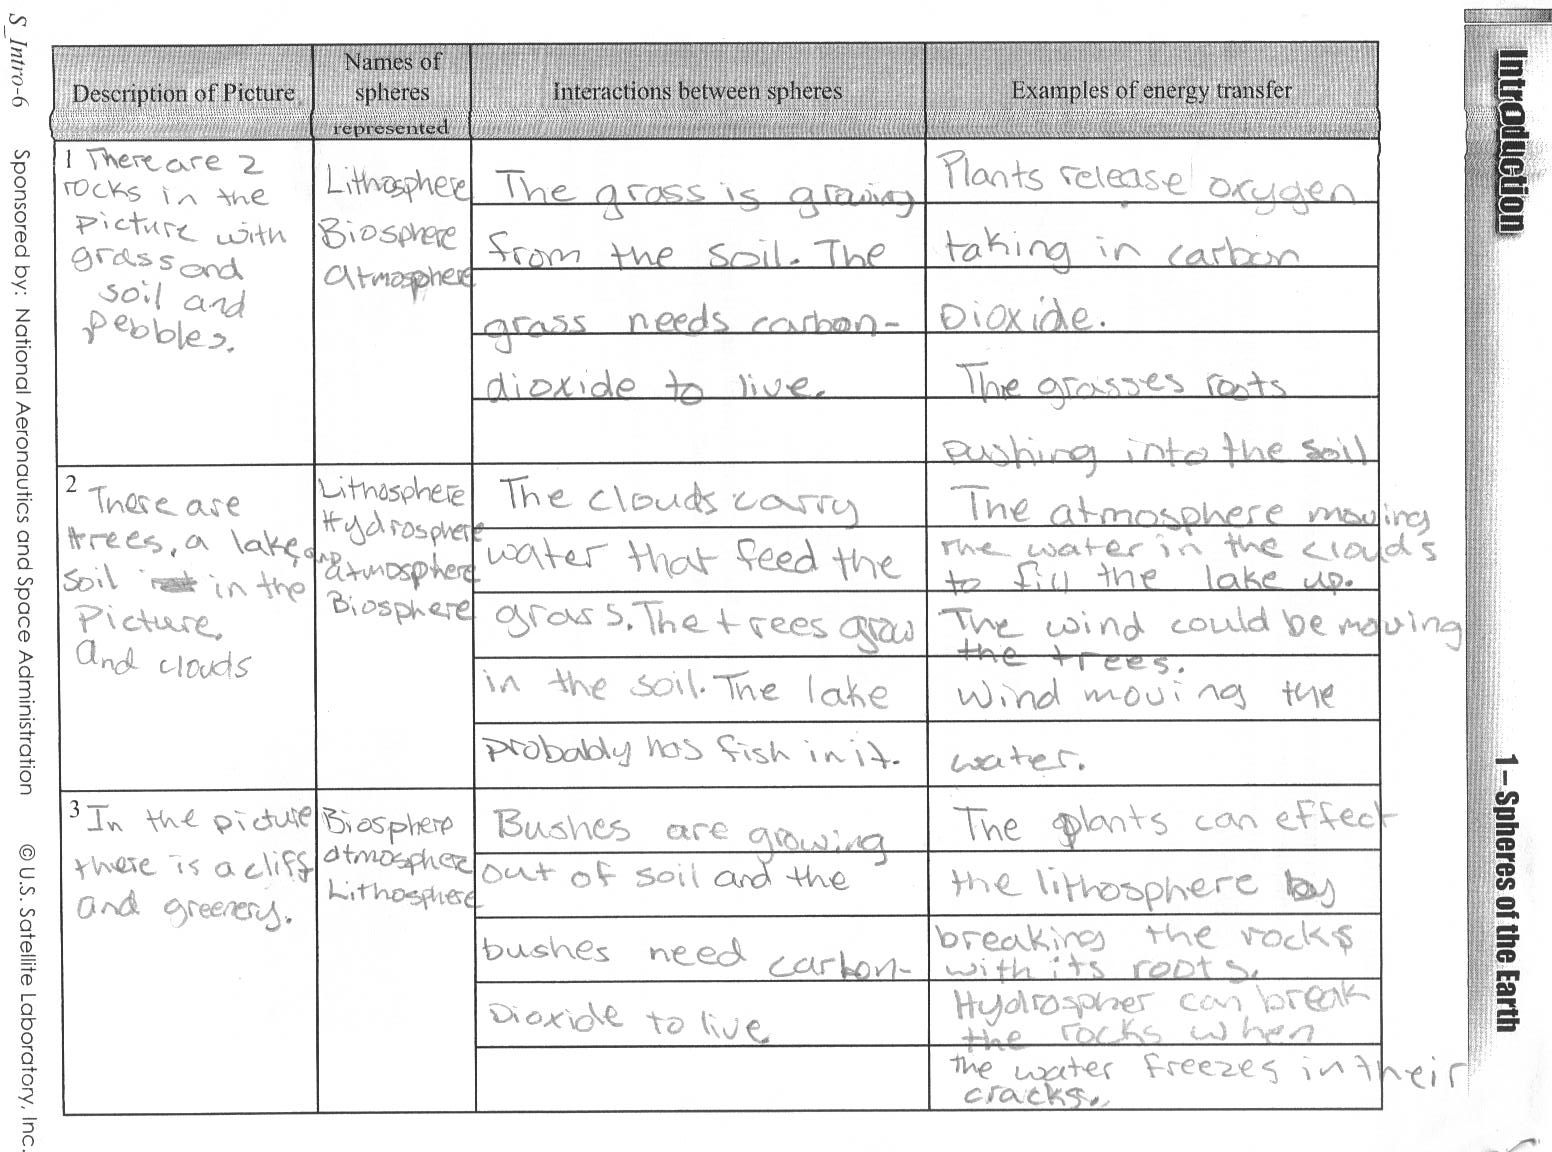 Introduction
1 – Spheres of the Earth
Description of Picture
Names of
spheres
represented
Interactions between spheres
Examples of energy transfer
1 There are 2
rocks in the
picture with
grass and
soil and
pebbles.
Lithosphere
Biosphere
atmosphere
The grass is growing
from the soil. The
grass needs carbon-
dioxide to live.
Plants release oxygen
taking in carbon
Dioxide.
The grasses roots
pushing into the soil
2 There are
trees, a lake, and
soil in the
Picture.
and clouds
Lithosphere
Hydrosphere
atmosphere
Biosphere
The clouds carry
water that feed the
grass. The trees grow
in the soil. The lake
probably has fish in it.
The atmosphere moving
the water in the clouds
to fill the lake up.
The wind could be moving
the trees.
Wind moving the
water.
3 In the picture
there is a cliff
and greenery.
Biosphere
atmosphere
Lithosphere
Bushes are growing
out of soil and the
bushes need carbon-
Dioxide to live.
The plants can effect
the lithosphere by
breaking the rocks
with its roots.
Hydrospher can break
the rocks when
the water freezes in their
cracks.
S_Intro-6 Sponsored by: National Aeronautics and Space Administration © U.S. Satellite Laboratory, Inc.